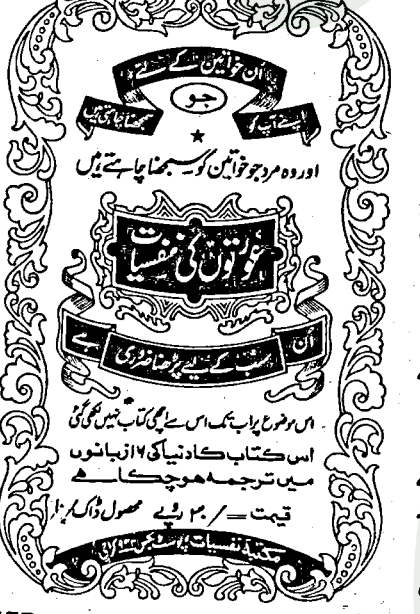 اُن خواتین کے لئے
جو
اپنے آپ کو سمجھنا چاہتی ہیں
اور وہ مرد جو خواتین کو سمجھنا چاہتے ہیں
عورتوں کی نفسیات
اُن سب کے لیے پڑھنا ضروری ہے
اس موضوع پر اب تک اس سے اچھی کتاب نہیں لکھی گئی
اس کتاب کا دنیا کی ۱۶ زبانوں
میں ترجمہ ہو چکا ہے
قیمت =/۳۰ روپے محصول ڈاک
مکتبہ نفسیات پوسٹ بکس کراچی